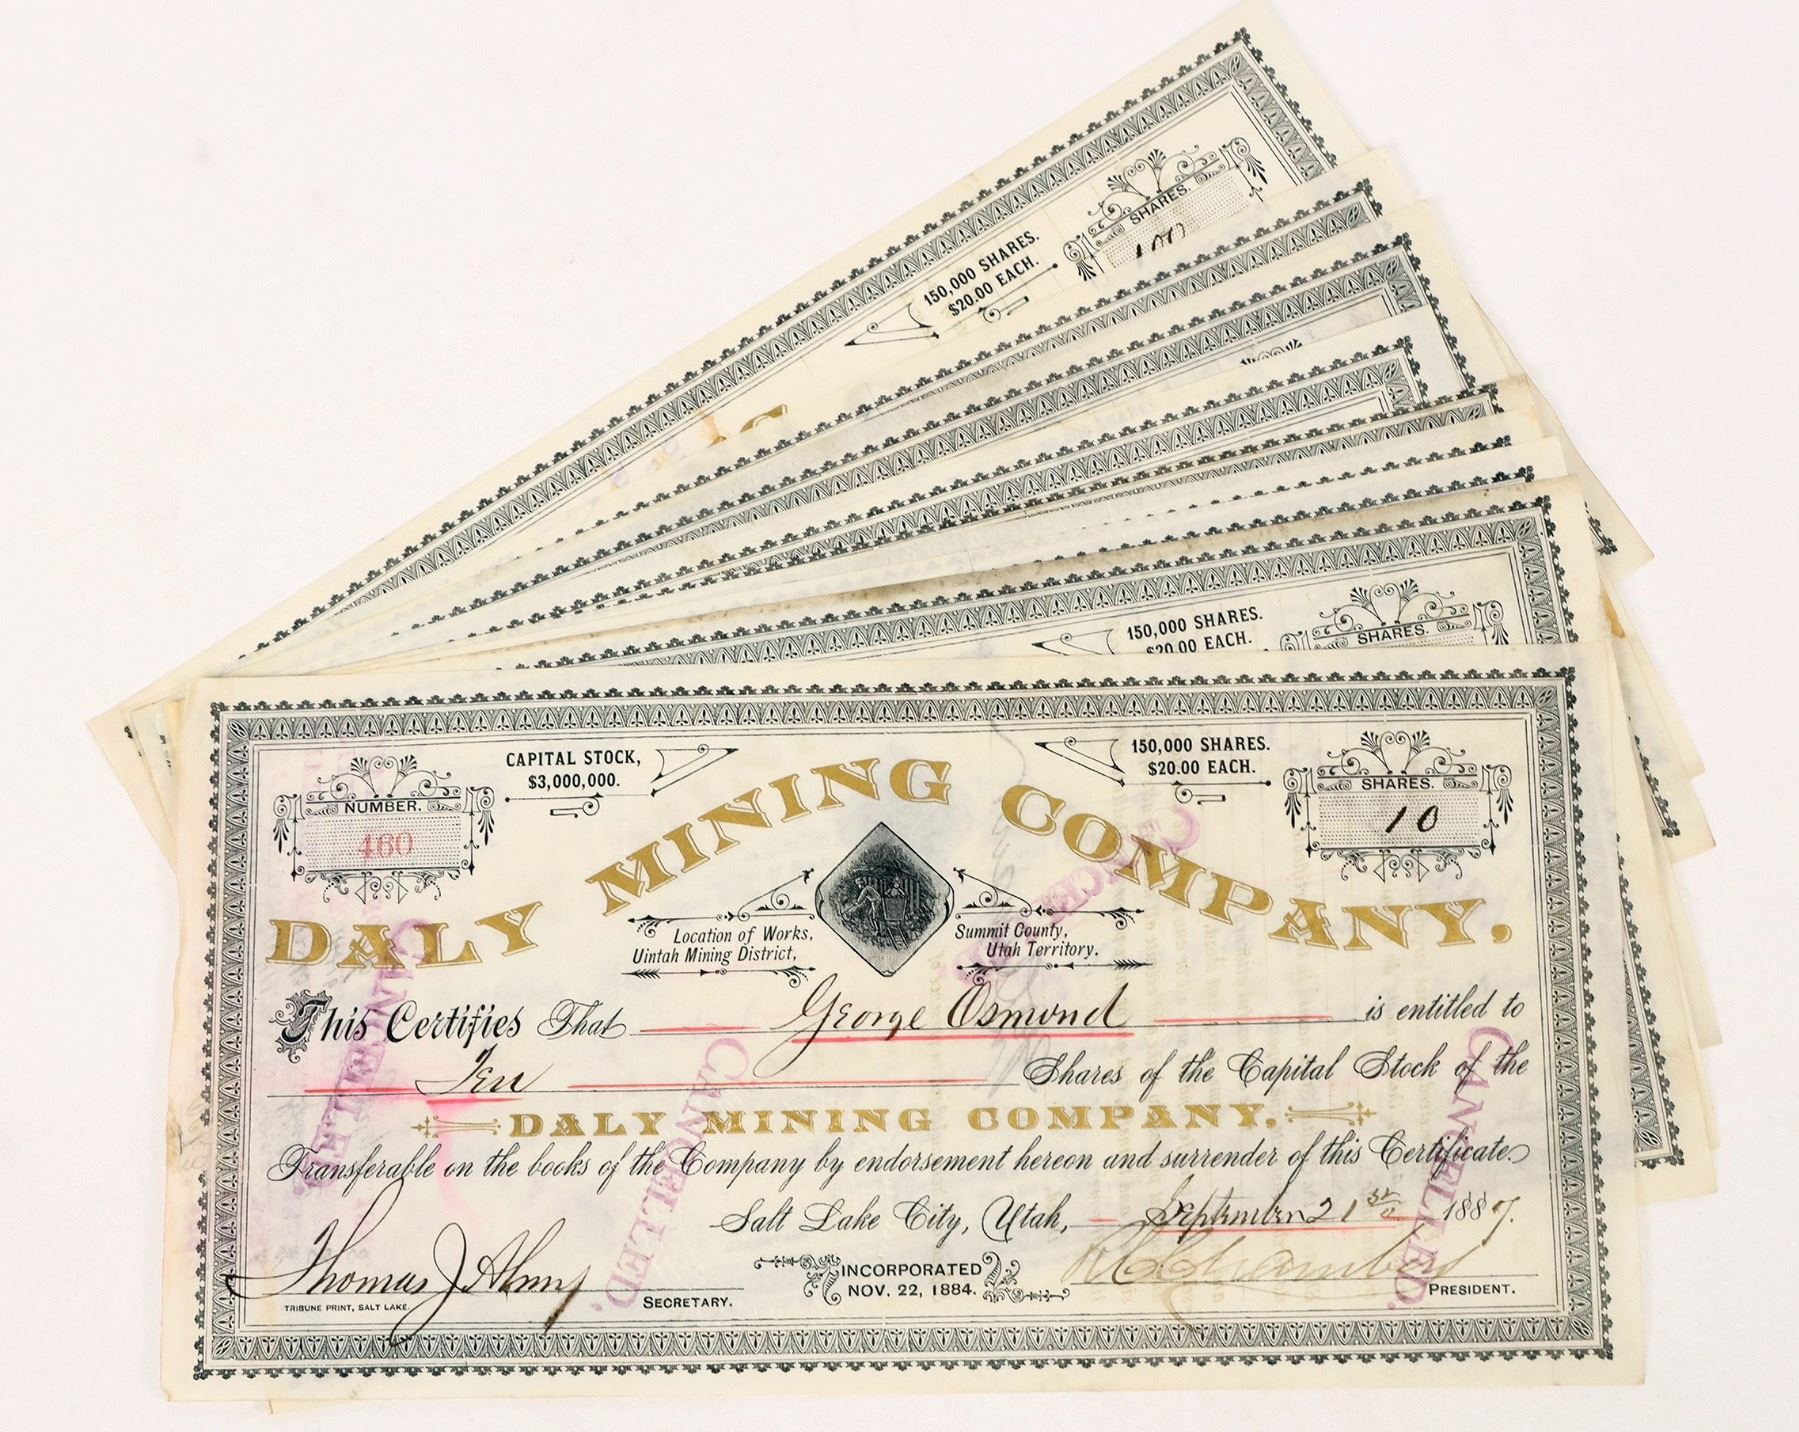 150,000 SHARES.
$20.00 EACH.
SHARES.
100
150,000 SHARES.
$20.00 EACH.
SHARES.
CAPITAL STOCK,
$3,000,000.
150,000 SHARES.
$20.00 EACH.
NUMBER.
460
SHARES.
10
DALY MINING COMPANY.
Location of Works,
Uintah Mining District,
Summit County,
Utah Territory.
This Certifies That George Osmond is entitled to
Ten Shares of the Capital Stock of the
DALY MINING COMPANY.
Transferable on the books of the Company by endorsement hereon and surrender of this Certificate.
Salt Lake City, Utah, September 21st 1887.
Thomas J. Almy
SECRETARY.
TRIBUNE PRINT, SALT LAKE.
INCORPORATED
NOV. 22, 1884.
PRESIDENT.
CANCELLED.
CANCELLED.
CANCELLED.